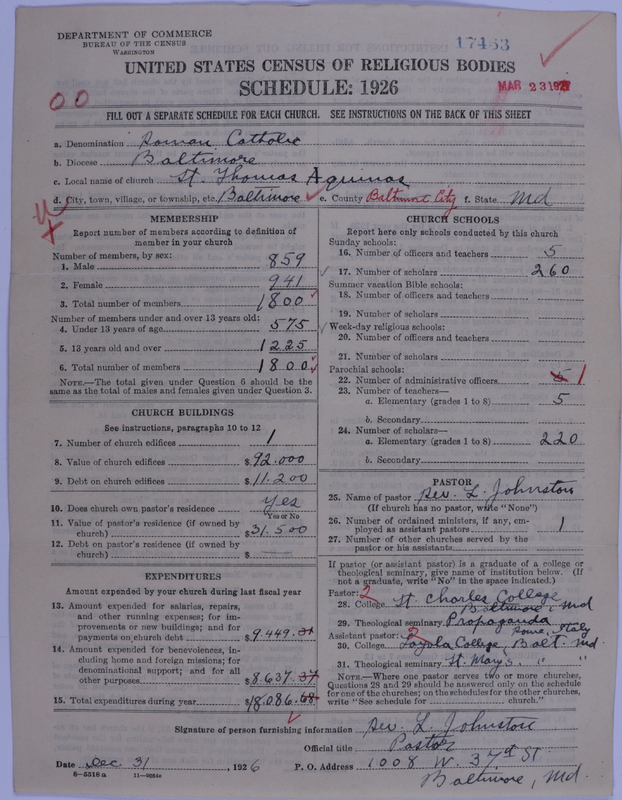 DEPARTMENT OF COMMERCE
BUREAU OF THE CENSUS
WASHINGTON
17463
UNITED STATES CENSUS OF RELIGIOUS BODIES
SCHEDULE: 1926
MAR 23 1927
00
FILL OUT A SEPARATE SCHEDULE FOR EACH CHURCH. SEE INSTRUCTIONS ON THE BACK OF THIS SHEET
a. Denomination Roman Catholic
b. Diocese Baltimore
c. Local name of church St. Thomas Aquinas
d. City, town, village, or township, etc. Baltimore e. County Baltimore City f. State Md
MEMBERSHIP
Report number of members according to definition of
member in your church
Number of members, by sex:
1. Male 859
2. Female 941
3. Total number of members 1800
Number of members under and over 13 years old:
4. Under 13 years of age 575
5. 13 years old and over 1225
6. Total number of members 1800
NOTE.—The total given under Question 6 should be the
same as the total of males and females given under Question 3.
CHURCH BUILDINGS
See instructions, paragraphs 10 to 12
7. Number of church edifices 1
8. Value of church edifices $92.000
9. Debt on church edifices $11.200
10. Does church own pastor's residence yes
Yes or No
11. Value of pastor's residence (if owned by
church) $31.500
12. Debt on pastor's residence (if owned by
church) $
EXPENDITURES
Amount expended by your church during last fiscal year
13. Amount expended for salaries, repairs,
and other running expenses; for im-
provements or new buildings; and for
payments on church debt $9.449.31
14. Amount expended for benevolences, in-
cluding home and foreign missions; for
denominational support; and for all
other purposes $8.637.37
15. Total expenditures during year $18.086.68
CHURCH SCHOOLS
Report here only schools conducted by this church
Sunday schools:
16. Number of officers and teachers 5
17. Number of scholars 260
Summer vacation Bible schools:
18. Number of officers and teachers
19. Number of scholars
Week-day religious schools:
20. Number of officers and teachers
21. Number of scholars
Parochial schools:
22. Number of administrative officers 5 1
23. Number of teachers—
a. Elementary (grades 1 to 8) 5
b. Secondary
24. Number of scholars—
a. Elementary (grades 1 to 8) 220
b. Secondary
PASTOR
25. Name of pastor Rev. L. Johnston
(If church has no pastor, write "None")
26. Number of ordained ministers, if any, em-
ployed as assistant pastors 1
27. Number of other churches served by the
pastor or his assistants
If pastor (or assistant pastor) is a graduate of a college or
theological seminary, give name of institution below. (If
not a graduate, write "No" in the space indicated.)
Pastor: 2
28. College St. Charles College
Baltimore, Md
29. Theological seminary Propaganda
Rome, Italy
Assistant pastor: 2
30. College Loyola College, Balt. Md.
31. Theological seminary St. Mary's " "
NOTE.—Where one pastor serves two or more churches,
Questions 28 and 29 should be answered only on the schedule
for one of the churches; on the schedules for the other churches,
write "See schedule for church."
Signature of person furnishing information Rev. L. Johnston
Official title Pastor
Date Dec 31, 1926 P. O. Address 1008 W. 37th St.
Baltimore, Md.
8—5518 a